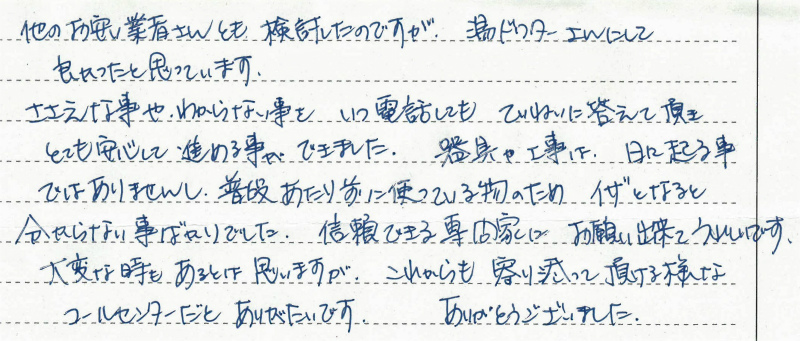 他のお安い業者さんとも 検討したのですが、 湯ドクターさんにして
良かったと思っています。
ささえな事や、わからない事を いつ電話しても ていねいに答えて頂き
とても安心して 進める事が できました。 器具や工事は、 日に起る事
ではありませんし、普段あたり前に使っている物のため イザとなると
分からない事ばかりでした。 信頼できる専門家に お願い出来てうれしいです。
大変な時も あるとは思いますが、 これからも 寄り添って頂ける様な
コールセンターだと ありがたいです。 ありがとうございました。